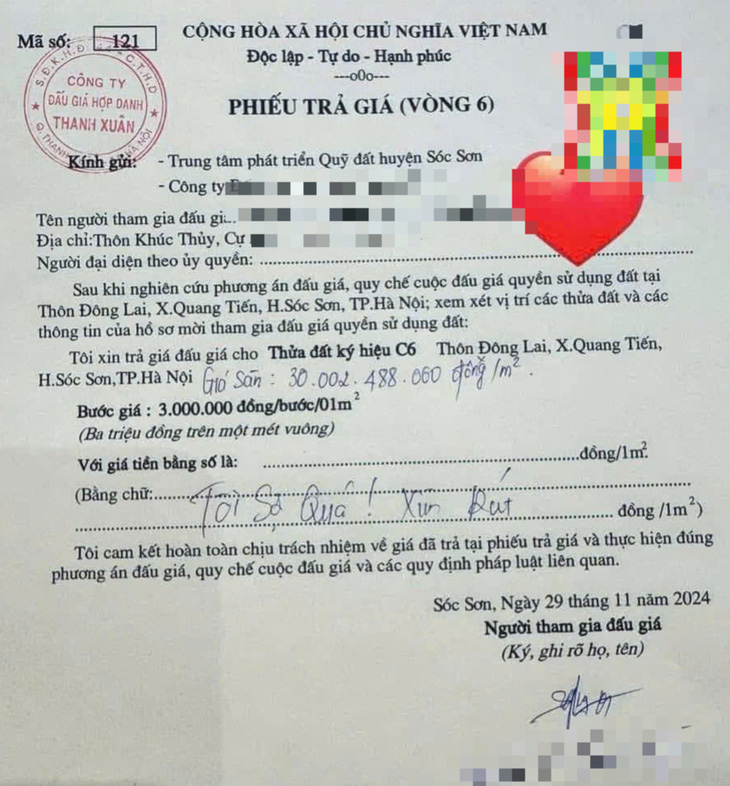 Mã số: 121
CỘNG HÒA XÃ HỘI CHỦ NGHĨA VIỆT NAM
Độc lập - Tự do - Hạnh phúc
---o0o---
S.Đ.K.H.Đ
C.T.H.D
CÔNG TY
ĐẤU GIÁ HỢP DANH
THANH XUÂN
PHIẾU TRẢ GIÁ (VÒNG 6)
Kính gửi: - Trung tâm phát triển Quỹ đất huyện Sóc Sơn
- Công ty
Tên người tham gia đấu
Địa chỉ:Thôn Khúc Thủy, Cự
Người đại diện theo ủy quyền:
Sau khi nghiên cứu phương án đấu giá, quy chế cuộc đấu giá quyền sử dụng đất tại
Thôn Đông Lai, X.Quang Tiến, H.Sóc Sơn, TP.Hà Nội; xem xét vị trí các thửa đất và các
thông tin của hồ sơ mời tham gia đấu giá quyền sử dụng đất:
Tôi xin trả giá đấu giá cho Thửa đất ký hiệu C6 Thôn Đông Lai, X.Quang Tiến,
H.Sóc Sơn,TP.Hà Nội Giá Sàn : 30.002.488.060 đồng/m².
Bước giá : 3.000.000 đồng/bước/01m²
(Ba triệu đồng trên một mét vuông)
Với giá tiền bằng số là: ...đồng/1m².
(Bằng chữ:... Tôi Sợ Quá! Xin Rút
... đồng /1m²)
Tôi cam kết hoàn toàn chịu trách nhiệm về giá đã trả tại phiếu trả giá và thực hiện đúng
phương án đấu giá, quy chế cuộc đấu giá và các quy định pháp luật liên quan.
Sóc Sơn, Ngày 29 tháng 11 năm 2024
Người tham gia đấu giá
(Ký, ghi rõ họ, tên)